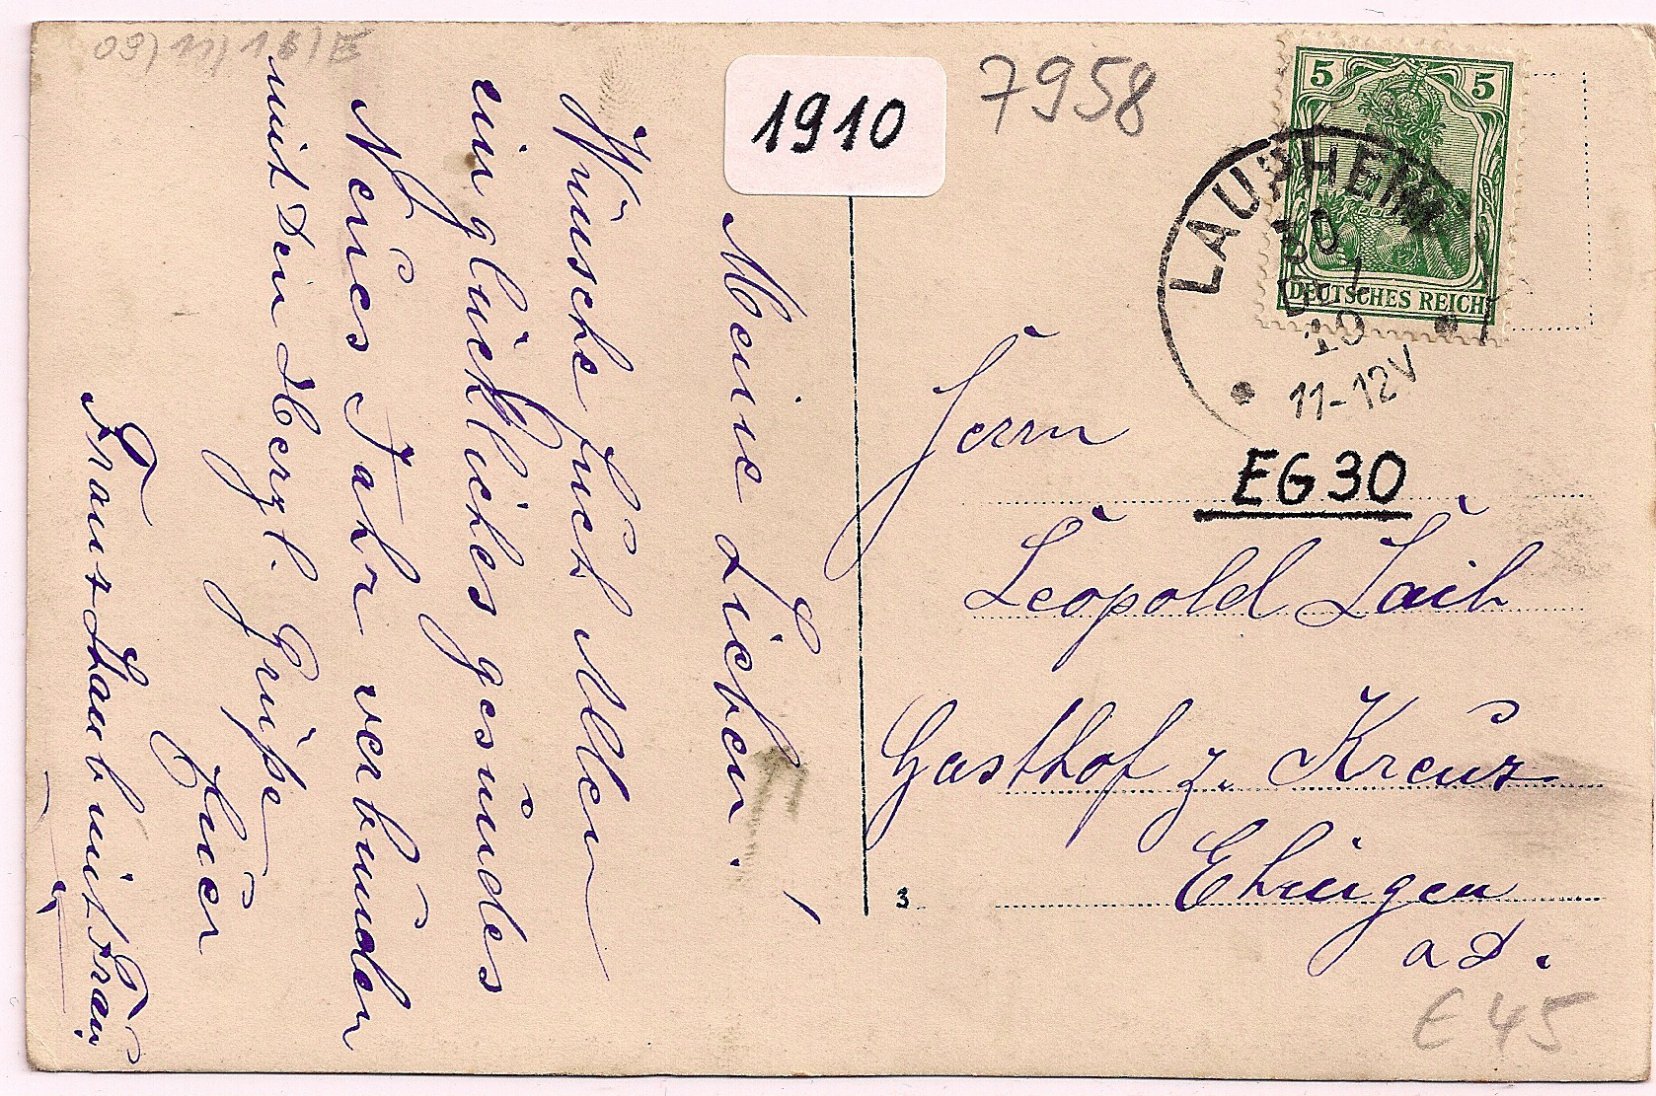 09/11/18/E
1910
7958
5 5
DEUTSCHES REICH
LAUPHEIM
30
10
11-12V
EG30
Meine Lieben!
Wünsche Euch Allen
ein glückliches gesundes
Neues Jahr verbunden
mit den Herzl. Grüße
Euer
Franz mit Frau.
Herrn
Leopold Laib
Gasthof z. Kreuz
Ehingen
a D.
3
€ 45